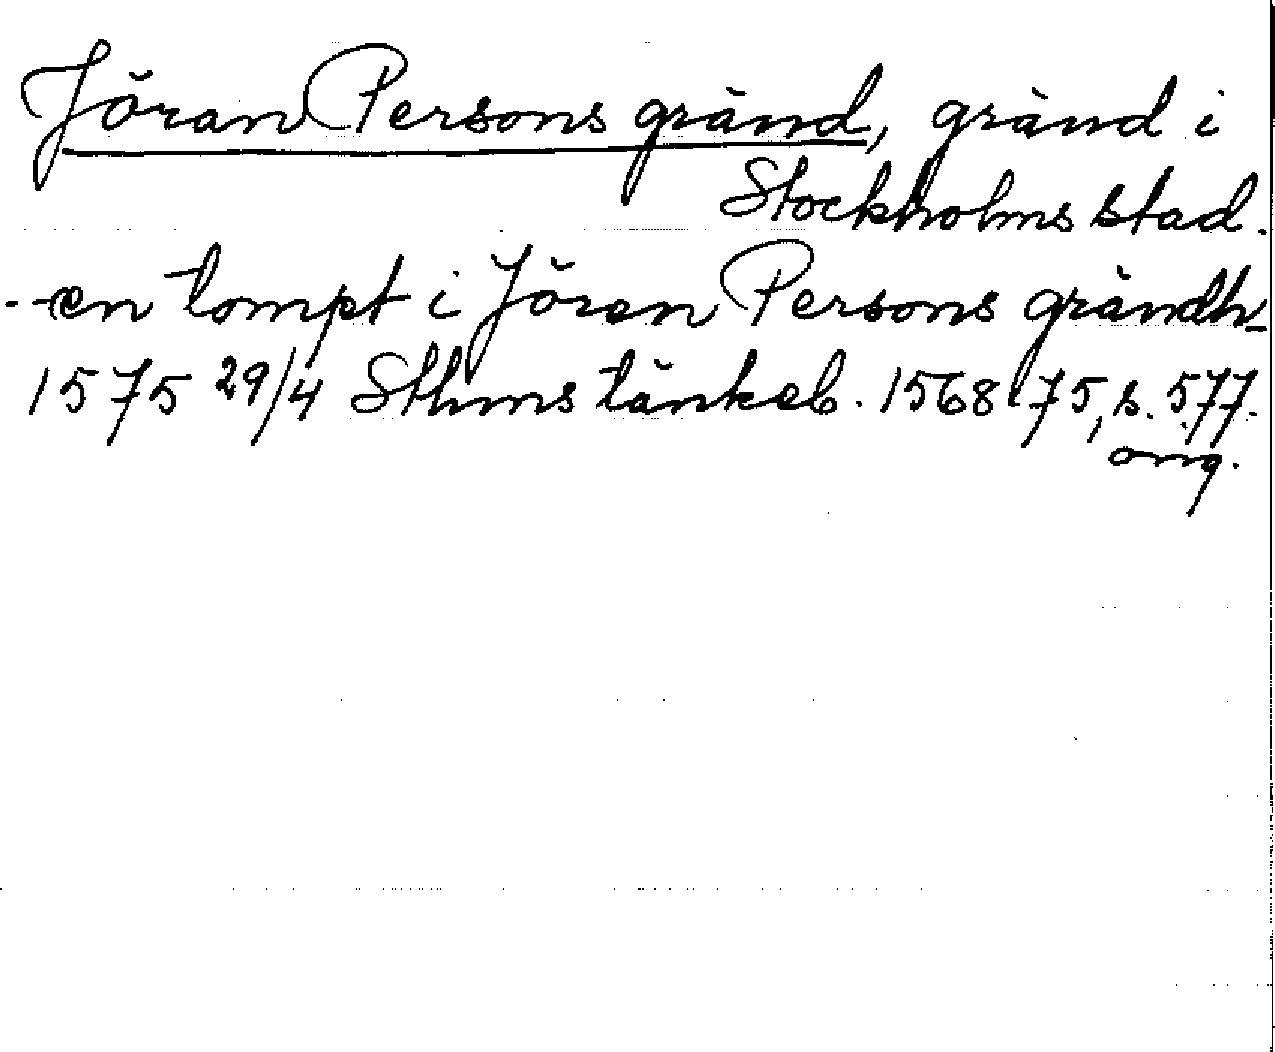 Jöran Persons gränd, gränd i
Stockholms stad.
- - en tompt i Jören Persons grändh -
1575 29/4 Sthms tänkeb. 1568-75, s. 577.
orig.